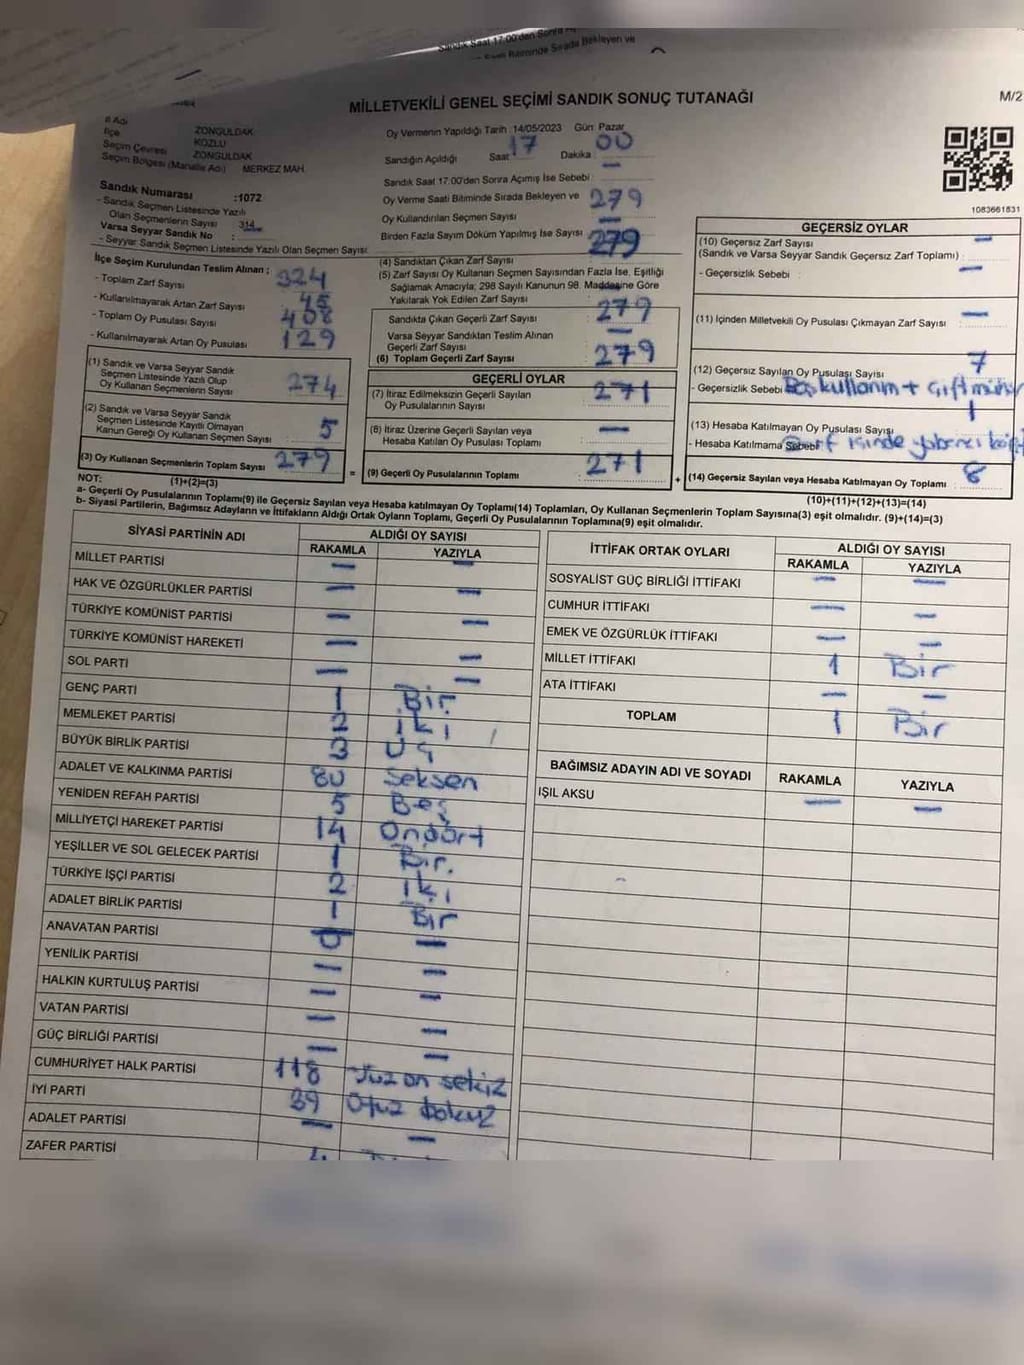 Sandık Saat 17:00'den Sonra
Bitiminde Sırada Bekleyen ve
MİLLETVEKİLİ GENEL SEÇİMİ SANDIK SONUÇ TUTANAĞI
M/2
İl Adı ZONGULDAK
İlçe KOZLU
Seçim Çevresi ZONGULDAK
Seçim Bölgesi (Mahalle Adı) MERKEZ MAH.
Sandık Numarası :1072
- Sandık Seçmen Listesinde Yazılı
Olan Seçmenlerin Sayısı : 314
Varsa Seyyar Sandık No :
- Seyyar Sandık Seçmen Listesinde Yazılı Olan Seçmen Sayısı:
Oy Vermenin Yapıldığı Tarih :14/05/2023 Gün: Pazar
Sandığın Açıldığı Saat 17 Dakika 00
Sandık Saat 17:00'den Sonra Açımış İse Sebebi : —
Oy Verme Saati Bitiminde Sırada Bekleyen ve
Oy Kullandırılan Seçmen Sayısı 279
Birden Fazla Sayım Döküm Yapılmış İse Sayısı —
1083661831
İlçe Seçim Kurulundan Teslim Alınan :
- Toplam Zarf Sayısı 324
- Kullanılmayarak Artan Zarf Sayısı 45
- Toplam Oy Pusulası Sayısı 408
- Kullanılmayarak Artan Oy Pusulası 129
(1) Sandık ve Varsa Seyyar Sandık
Seçmen Listesinde Yazılı Olup
Oy Kullanan Seçmenlerin Sayısı 274
(2) Sandık ve Varsa Seyyar Sandık
Seçmen Listesinde Kayıtlı Olmayan
Kanun Gereği Oy Kullanan Seçmen Sayısı 5
(3) Oy Kullanan Seçmenlerin Toplam Sayısı 279
(1)+(2)=(3)
(4) Sandıktan Çıkan Zarf Sayısı 279
(5) Zarf Sayısı Oy Kullanan Seçmen Sayısından Fazla İse, Eşitliği
Sağlamak Amacıyla; 298 Sayılı Kanunun 98. Maddesine Göre
Yakılarak Yok Edilen Zarf Sayısı —
Sandıkta Çıkan Geçerli Zarf Sayısı 279
Varsa Seyyar Sandıktan Teslim Alınan
Geçerli Zarf Sayısı —
(6) Toplam Geçerli Zarf Sayısı 279
GEÇERLİ OYLAR
(7) İtiraz Edilmeksizin Geçerli Sayılan
Oy Pusulalarının Sayısı 271
(8) İtiraz Üzerine Geçerli Sayılan veya
Hesaba Katılan Oy Pusulası Toplamı —
= (9) Geçerli Oy Pusulalarının Toplamı 271
GEÇERSİZ OYLAR
(10) Geçersiz Zarf Sayısı —
(Sandık ve Varsa Seyyar Sandık Geçersiz Zarf Toplamı) :
- Geçersizlik Sebebi : —
(11) İçinden Milletvekili Oy Pusulası Çıkmayan Zarf Sayısı —
(12) Geçersiz Sayılan Oy Pusulası Sayısı 7
- Geçersizlik Sebebi Boş kullanım + çift mühür
(13) Hesaba Katılmayan Oy Pusulası Sayısı 1
- Hesaba Katılmama Sebebi içinde yabancı
+ (14) Geçersiz Sayılan veya Hesaba Katılmayan Oy Toplamı 8
(10)+(11)+(12)+(13)=(14)
NOT:
a- Geçerli Oy Pusulalarının Toplamı(9) ile Geçersiz Sayılan veya Hesaba katılmayan Oy Toplamı(14) Toplamları, Oy Kullanan Seçmenlerin Toplam Sayısına(3) eşit olmalıdır. (9)+(14)=(3)
b- Siyasi Partilerin, Bağımsız Adayların ve İttifakların Aldığı Ortak Oyların Toplamı, Geçerli Oy Pusulalarının Toplamına(9) eşit olmalıdır.
SİYASİ PARTİNİN ADI ALDIĞI OY SAYISI
RAKAMLA YAZIYLA
MİLLET PARTİSİ — —
HAK VE ÖZGÜRLÜKLER PARTİSİ — —
TÜRKİYE KOMÜNİST PARTİSİ — —
TÜRKİYE KOMÜNİST HAREKETİ — —
SOL PARTİ — —
GENÇ PARTİ 1 Bir
MEMLEKET PARTİSİ 2 iki
BÜYÜK BİRLİK PARTİSİ 3 Üç
ADALET VE KALKINMA PARTİSİ 80 Seksen
YENİDEN REFAH PARTİSİ 5 Beş
MİLLİYETÇİ HAREKET PARTİSİ 14 Ondört
YEŞİLLER VE SOL GELECEK PARTİSİ 1 Bir.
TÜRKİYE İŞÇİ PARTİSİ 2 iki
ADALET BİRLİK PARTİSİ 1 Bir
ANAVATAN PARTİSİ 0 —
YENİLİK PARTİSİ — —
HALKIN KURTULUŞ PARTİSİ — —
VATAN PARTİSİ — —
GÜÇ BİRLİĞİ PARTİSİ — —
CUMHURİYET HALK PARTİSİ 118 Yüz on sekiz
İYİ PARTİ 39 Otuz dokuz
ADALET PARTİSİ — —
ZAFER PARTİSİ
İTTİFAK ORTAK OYLARI ALDIĞI OY SAYISI
RAKAMLA YAZIYLA
SOSYALİST GÜÇ BİRLİĞİ İTTİFAKI — —
CUMHUR İTTİFAKI — —
EMEK VE ÖZGÜRLÜK İTTİFAKI — —
MİLLET İTTİFAKI 1 Bir
ATA İTTİFAKI — —
TOPLAM 1 Bir
BAĞIMSIZ ADAYIN ADI VE SOYADI RAKAMLA YAZIYLA
IŞIL AKSU — —